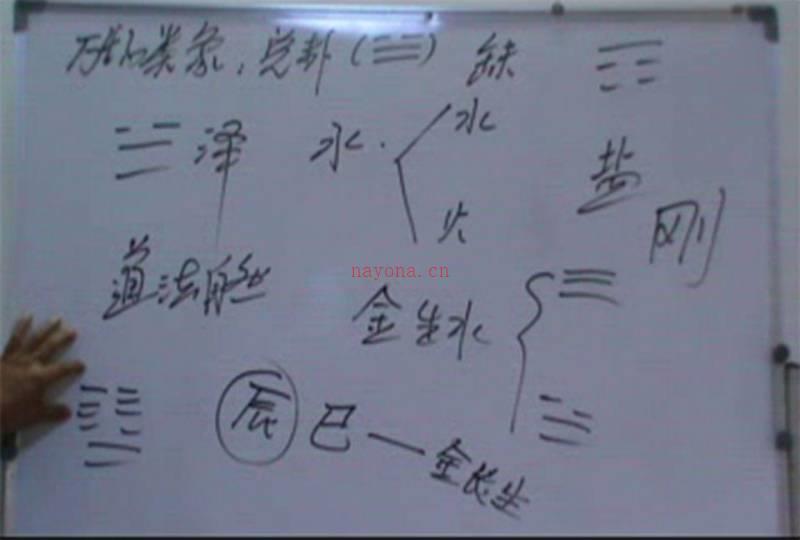 万物类象，兑卦（☰） 缺
☱ 泽 水 水
火
盐
刚
道法自然
nayona.cn
金生水
辰 巳 — 金长生